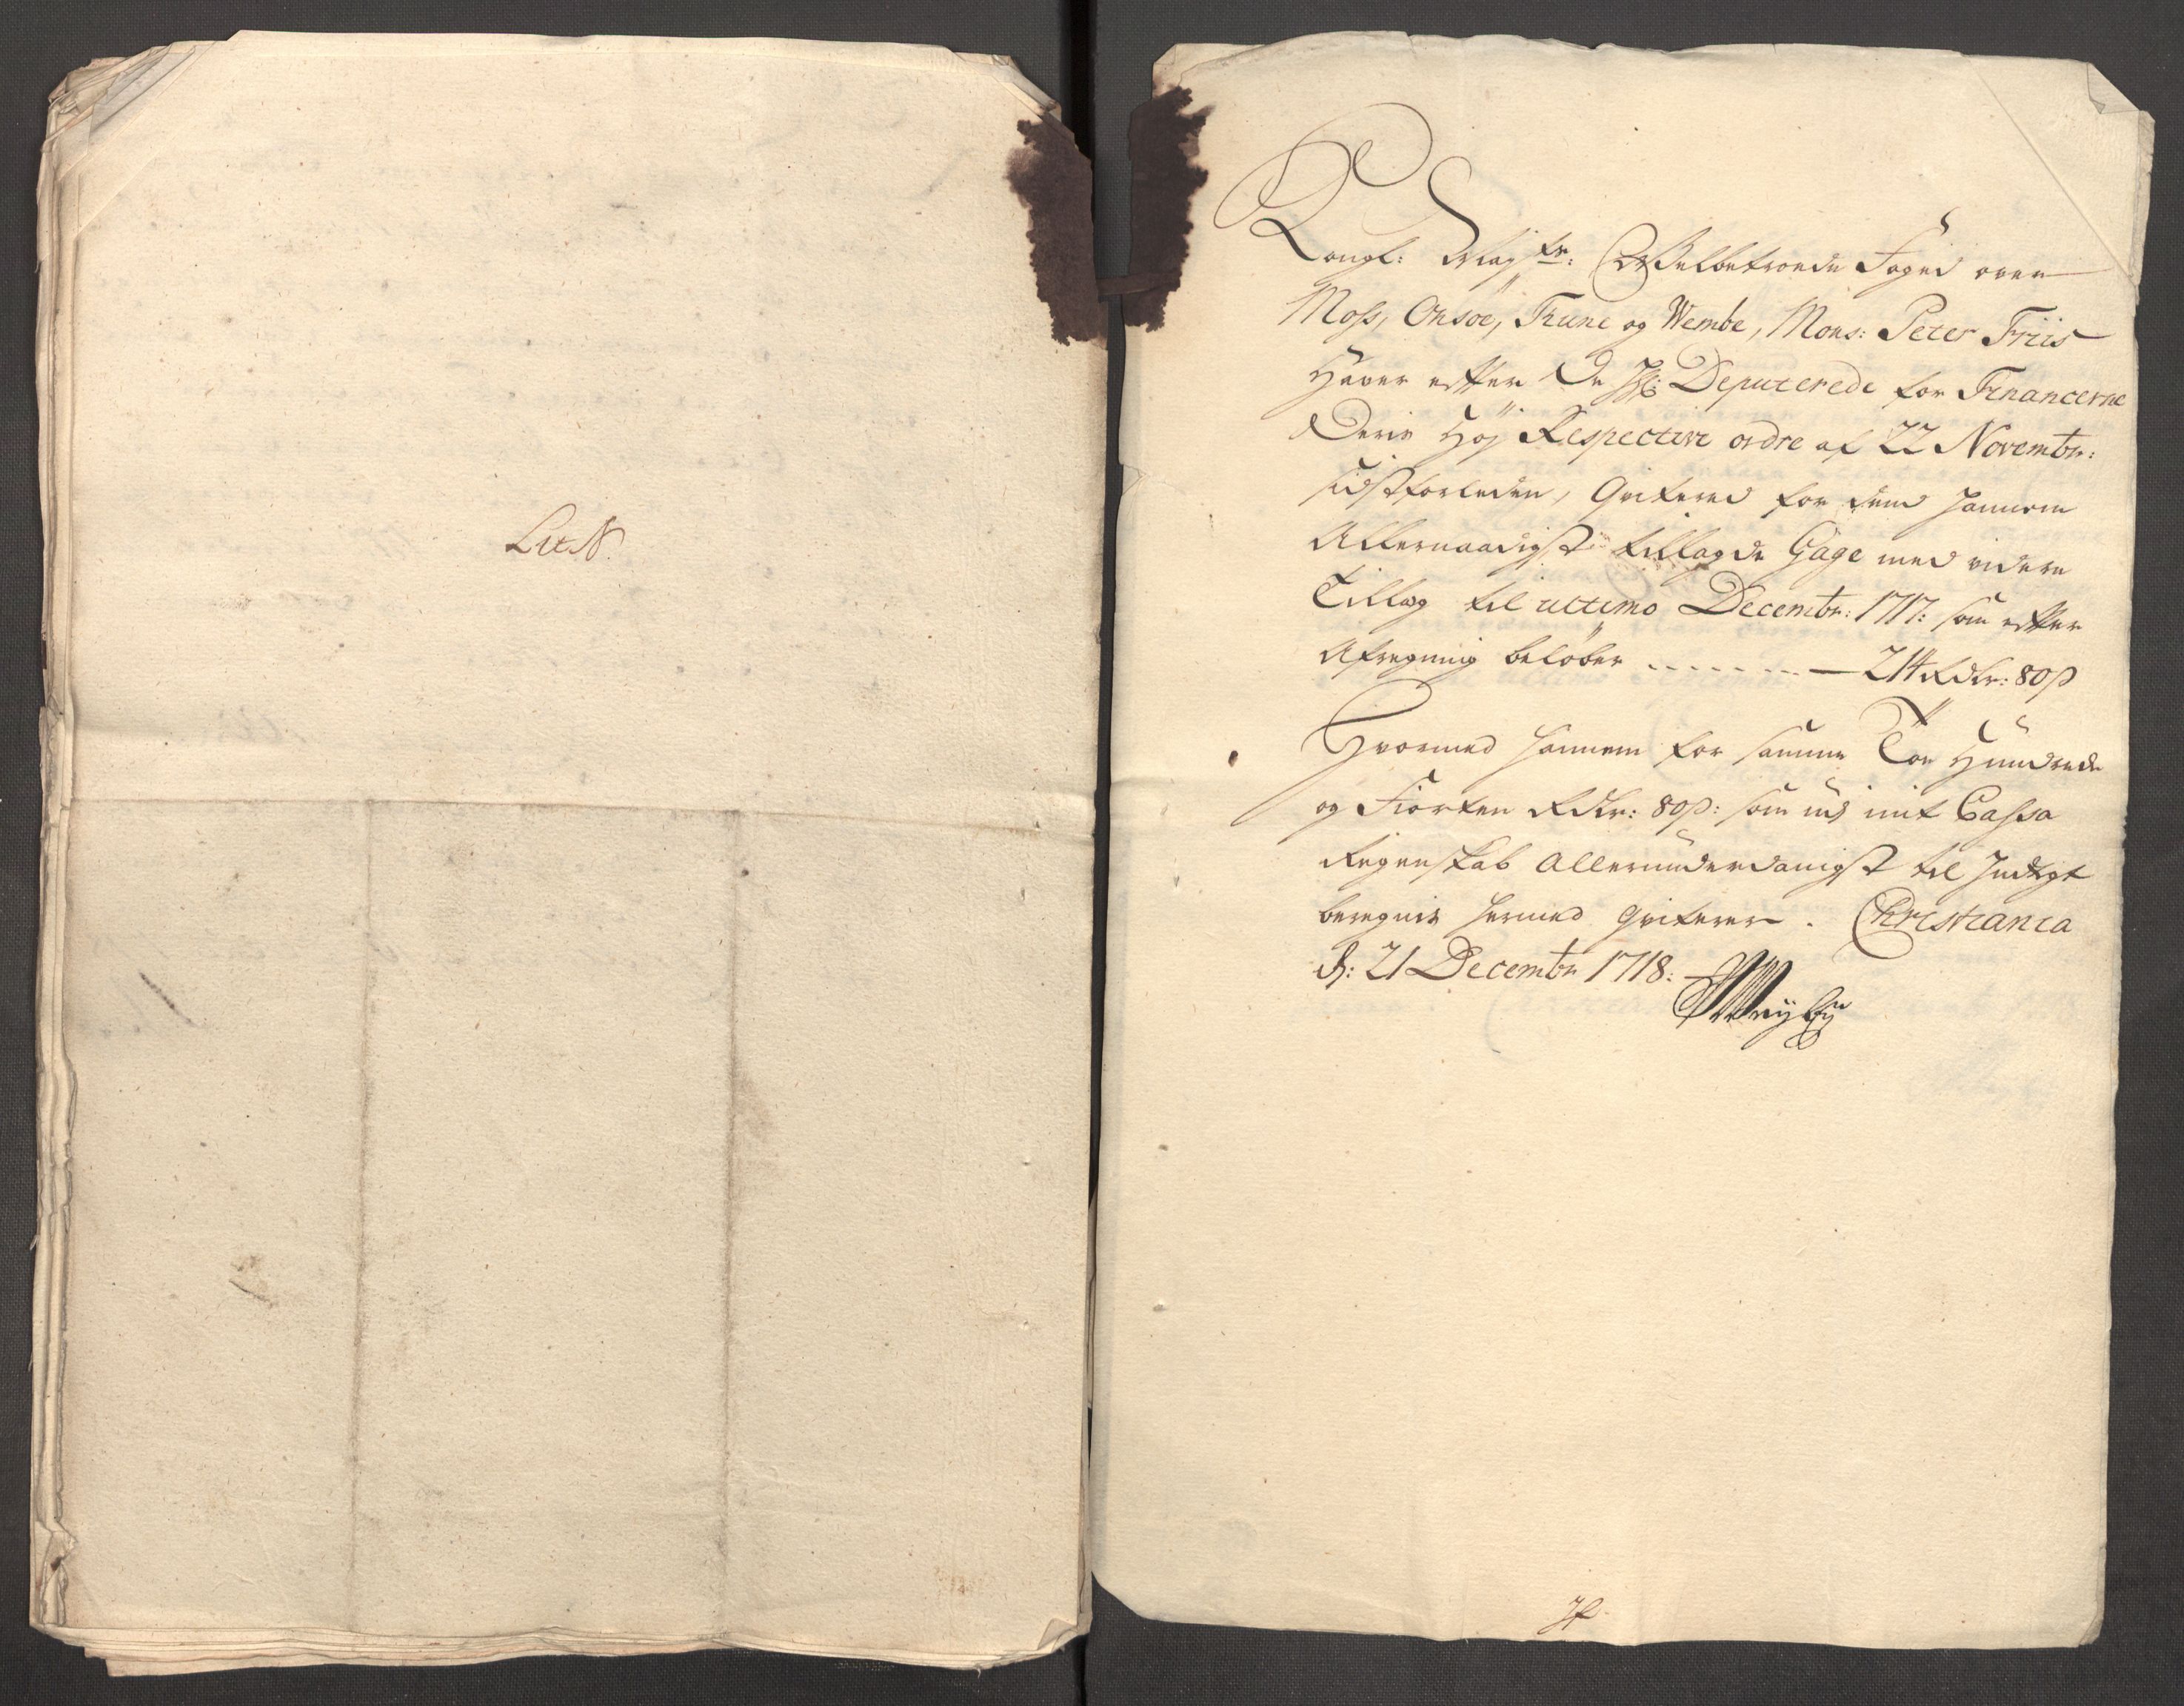 Lit N.
Kongl: May.tz. Velbetroede Foged over
Moss, Onsøe, Thune og Wembe, Mons: Peter Friis
Haver efter De Hh: Deputerede for Financerne
Deris Høj Respective ordre af 22 Novembr:
sidstforleden, Qvitered for dend hannem
Allernaadigst tillagde Gage med videre
Tillæg til ultimo Decembr: 1717: som efter
Afregning beløber - - - - - - - 214 Rdlr: 80 s
Hvormed hannem for samme Toe Hundrede
og Fiorten Rdlr: 80 s: som udj mit Cassa
Regenskab Allerunderdanigst til Indtegt
beregnis hermed qviterer. Christiania
d: 21 Decembr 1718: